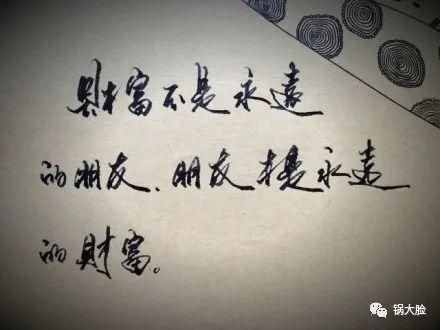 财富不是永遠
的朋友、朋友才是永遠
的財富。
锅大脸